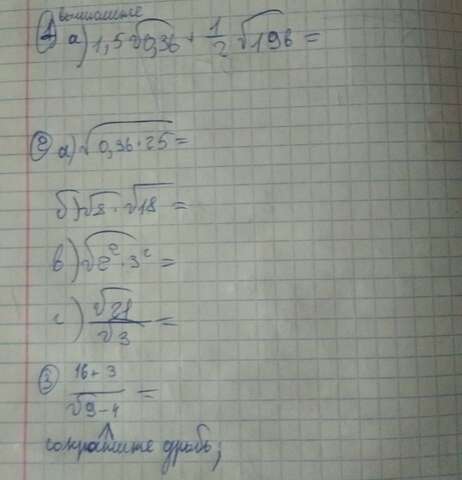 вычислите
① а) 1,5√0,36 + 1/2 √196 =
② а) √0,36·25 =
б) √8 · √18 =
в) √2² · 3² =
г) √21/√3 =
③ 16+3/√9-4 =
сократите дробь;